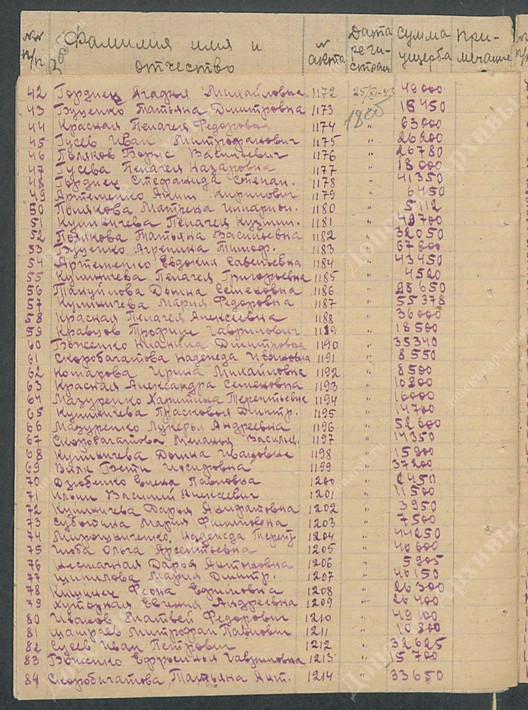 №№ п/п Фамилия имя и отчество № акта Дата регистрац Сумма ущерба Примечание
42 Гордиец Агафья Михайловна 1172 25/XI-43 49000
43 Буценко Татьяна Дмитровна 1173 " 18450
1805
44 Красная Пелагея Федоровна 1174 " 63000
45 Гусев Иван Митрофанович 1175 " 26200
46 Поляков Борис Васильевич 1176 " 26780
47 Гусева Пелагея Назаровна 1177 " 18000
48 Гордиец Степанида Степан. 1178 " 41350
49 Артеменко Аким Кирилович 1179 " 6450
50 Полякова Матрена 1180 " 5112
51 Кушничева Пелагея Кузьми. 1181 " 49700
52 Полякова Татьяна Васильевна 1182 " 32050
53 Буценко 1183 " 67200
54 Артеменко Евдокия Савельевна 1184 " 43450
55 Кушничева Пелагея Григорьевна 1185 " 4520
56 Мануйлова Домна Семеновна 1186 " 28650
57 Кушничева Мария Федоровна 1187 " 55378
58 Красная Пелагея Алексеевна 1188 " 36000
59 Кравцов Трофим Гаврилович 1189 " 18500
60 Боженко Дмитровна 1190 " 35340
61 Скоробагатова Надежда Ивановна 1191 " 8550
62 Комарова Ирина Михайловна 1192 " 8500
63 Красная Александра Семеновна 1193 " 10800
64 Мазуренко Харитина Терентьевна 1194 " 16000
65 Кушничева Прасковья Дмитр. 1195 " 14700
66 Мазуренко Лукерья Андреевна 1196 " 52600
67 Скоробагатова Мелания Василев. 1197 " 14350
68 Кушничева Домна Ивановна 1198 " 15900
69 1199 " 37200
70 Дзюбенко Елена Павловна 1200 " 2450
71 Ильин Василий Алексеевич 1201 " 11500
72 Кушничева Дарья 1202 " 3950
73 Субботина Мария Филиповна 1203 " 7500
74 Мирошниченко Надежда Терент. 1204 " 44250
75 Ольга Арсентьевна 1205 " 46600
76 Дарья Антоновна 1206 " 5905
77 Мария Дмитр. 1207 " 46150
78 Феона Ефимовна 1208 " 26300
79 Хуторная Евгения Андреевна 1209 " 26400
80 Иванов Матвей Федорович 1210 " 49100
81 Митрофан Павлович 1211 " 10200
82 Гусев Иван Петрович 1212 " 32625
83 Боженко Ефросинья Гавриловна 1213 " 15700
84 Скоробагатова Татьяна Ант. 1214 " 33650